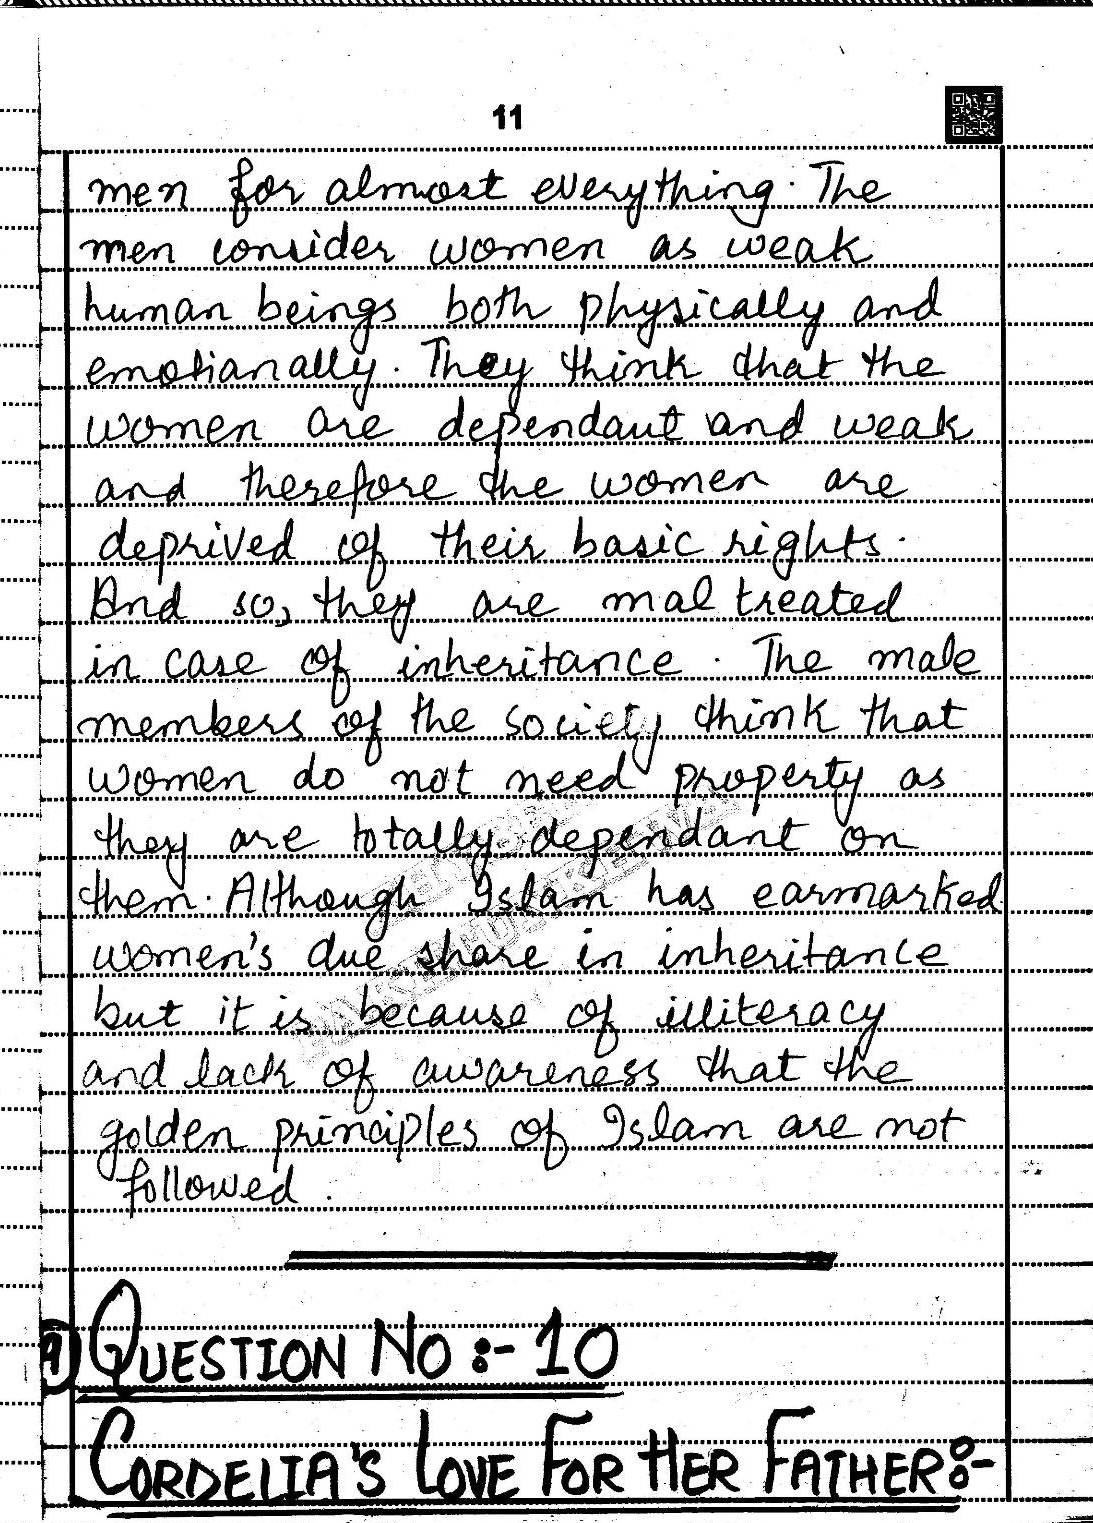 11
men for almost everything. The
men consider women as weak
human beings both physically and
emotianally. They think that the
women are dependant and weak
and therefore the women are
deprived of their basic rights.
And so, they are mal treated
in case of inheritance. The male
members of the society think that
women do not need property as
they are totally dependant on
them. Although Islam has earmarked
women's due share in inheritance
but it is because of illiteracy
and lack of awareness that the
golden principles of Islam are not
followed.
QUESTION NO :- 10
CORDELIA'S LOVE FOR HER FATHER :-